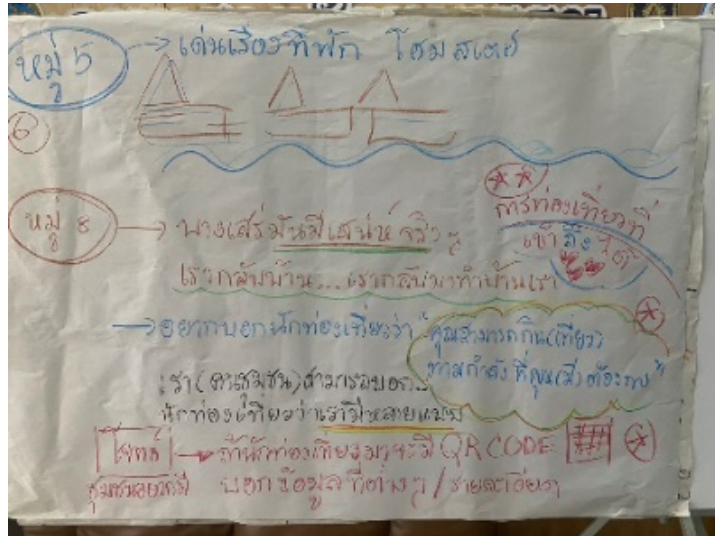 หมู่ 5 → เด่นเรื่องที่พัก โฮมสเตย์
6
หมู่ 8 → บางเสร่มันมีเสน่ห์จริงๆ
เรากลับบ้าน...เรากลับมาทำบ้านเรา
การท่องเที่ยวที่
เข้าถึงได้
→ อยากบอกนักท่องเที่ยวว่า
"คุณสามารถกิน(เที่ยว)
ตามกำลังที่คุณ(มี)
"
เรา(คนชุมชน)สามารถบอก
นักท่องเที่ยวว่าเรามีหลายแบบ
โจทย์ → ถ้านักท่องเที่ยวมาจะมี QR CODE
ชุมชนอยากมี
บอกข้อมูลที่ต่างๆ/รายละเอียดๆ